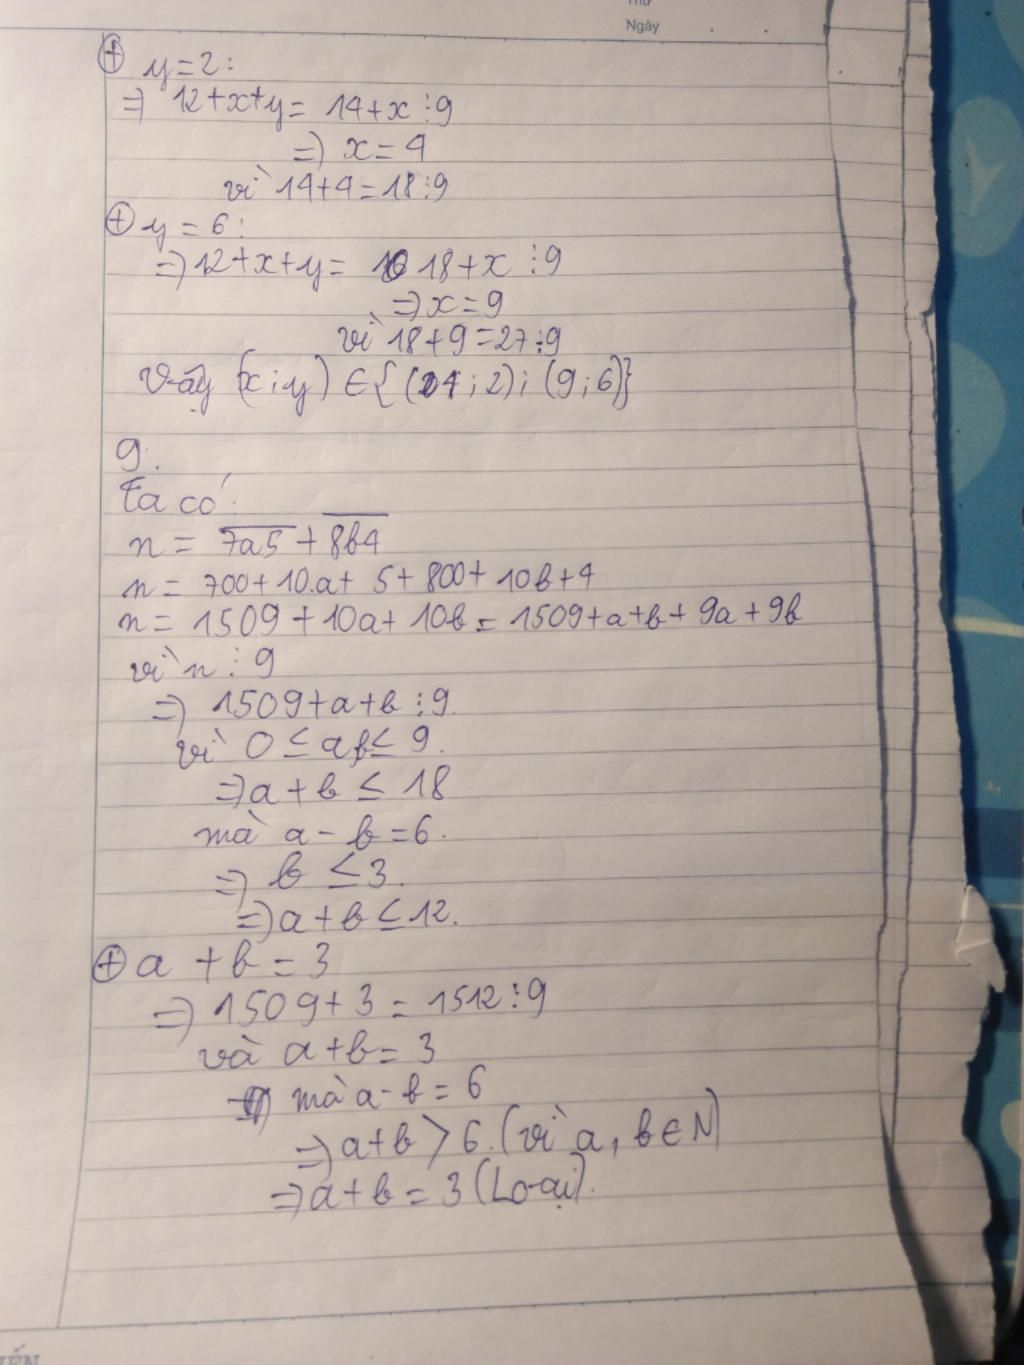 Thứ
Ngày
⊕ y = 2:
=> 12+x+y = 14+x ⋮ 9
=> x = 4
vì 14+4 = 18 ⋮ 9
⊕ y = 6:
=> 12+x+y = 18+x ⋮ 9
=> x = 9
vì 18+9 = 27 ⋮ 9
Vậy (x;y) ∈ {(4;2); (9;6)}
9.
Ta có:
n = 7a5 + 8b4
n = 700 + 10.a + 5 + 800 + 10b + 4
n = 1509 + 10a + 10b = 1509 + a + b + 9a + 9b
vì n ⋮ 9
=> 1509 + a + b ⋮ 9.
vì 0 ≤ a,b ≤ 9.
=> a + b ≤ 18
mà a - b = 6.
=> b ≤ 3.
=> a + b ≤ 12.
⊕ a + b = 3
=> 1509 + 3 = 1512 ⋮ 9
và a + b = 3
mà a - b = 6
=> a + b > 6. (vì a, b ∈ N)
=> a + b = 3 (Loại).